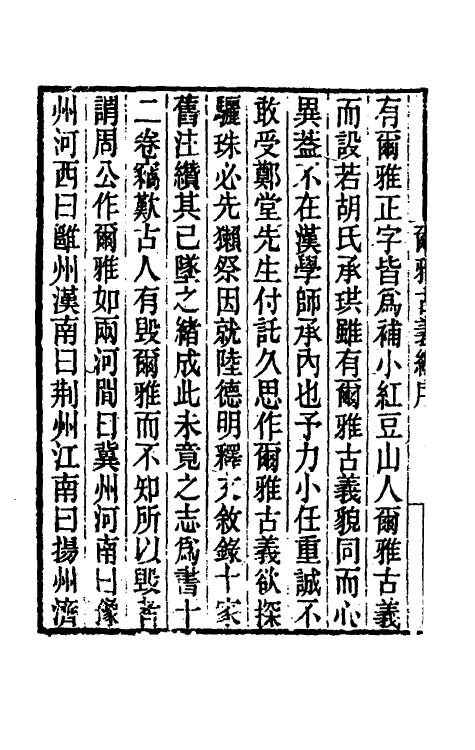 有爾雅正字皆爲補小紅豆山人爾雅古義
而設若胡氏承珙雖有爾雅古義貌同而心
異葢不在漢學師承內也予力小任重誠不
敢受鄭堂先生付託久思作爾雅古義欲探
驪珠必先獺祭因就陸德明釋文敘錄十家
舊注纘其已墜之緒成此未竟之志爲書十
二卷竊歎古人有毀爾雅而不知所以毀者
謂周公作爾雅如兩河間曰冀州河南曰豫
州河西曰雝州漢南曰荆州江南曰揚州濟
爾雅古義總序